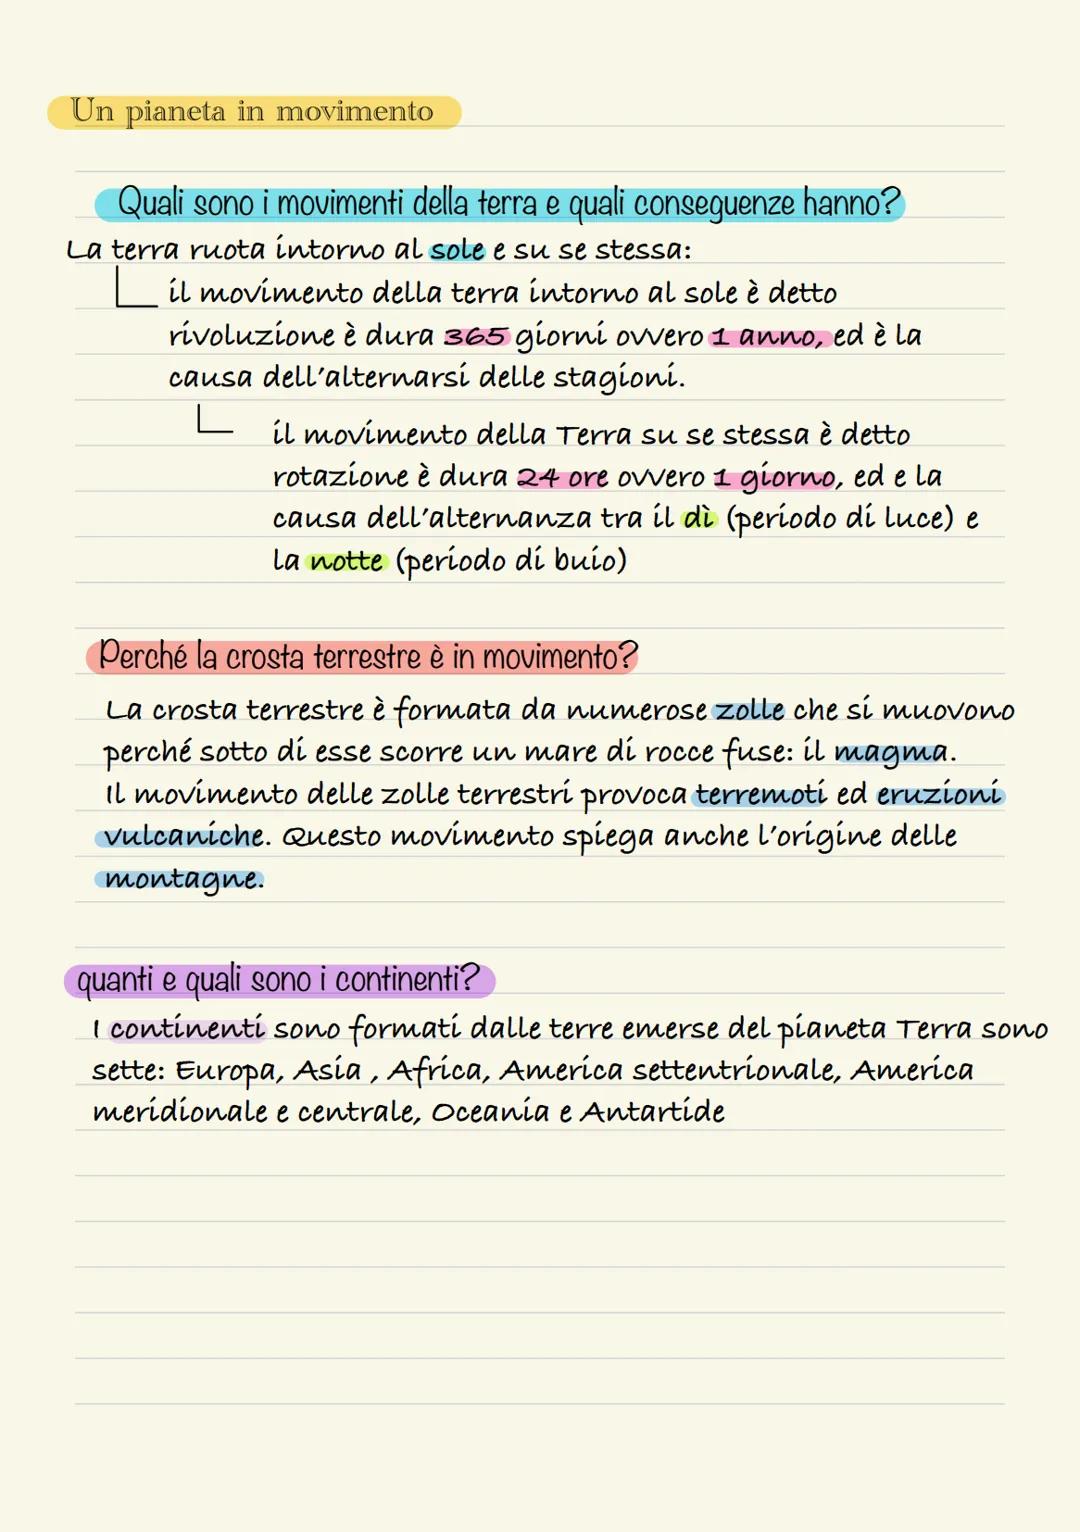 Un pianeta in movimento
Quali sono i movimenti della terra e quali conseguenze hanno?
La terra ruota intorno al sole e su se stessa:
il movimento della terra intorno al sole è detto
rivoluzione è dura 365 giorni ovvero 1 anno, ed è la
causa dell'alternarsi delle stagioni.
il movimento della Terra su se stessa è detto
rotazione è dura 24 ore ovvero 1 giorno, ed e la
causa dell'alternanza tra il dì (periodo di luce) e
la notte (periodo di buio)
Perché la crosta terrestre è in movimento?
La crosta terrestre è formata da numerose zolle che si muovono
perché sotto di esse scorre un mare di rocce fuse: il magma.
Il movimento delle zolle terrestri provoca terremoti ed eruzioni
vulcaniche. Questo movimento spiega anche l'origine delle
montagne.
quanti e quali sono i continenti?
I continenti sono formati dalle terre emerse del pianeta Terra sono
sette: Europa, Asia , Africa, America settentrionale, America
meridionale e centrale, Oceania e Antartide